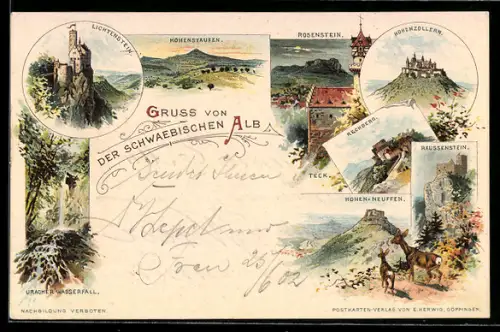 LICHTENSTEIN.
HOHENSTAUFEN.
ROSENSTEIN.
HOHENZOLLERN.
GRUSS VON
DER SCHWAEBISCHEN ALB
RECHBERG.
REUSSENSTEIN.
TECK.
HOHEN-NEUFFEN.
25/6 02
URACHER WASSERFALL.
NACHBILDUNG VERBOTEN.
POSTKARTEN-VERLAG VON E. HERWIG, GÖPPINGEN.